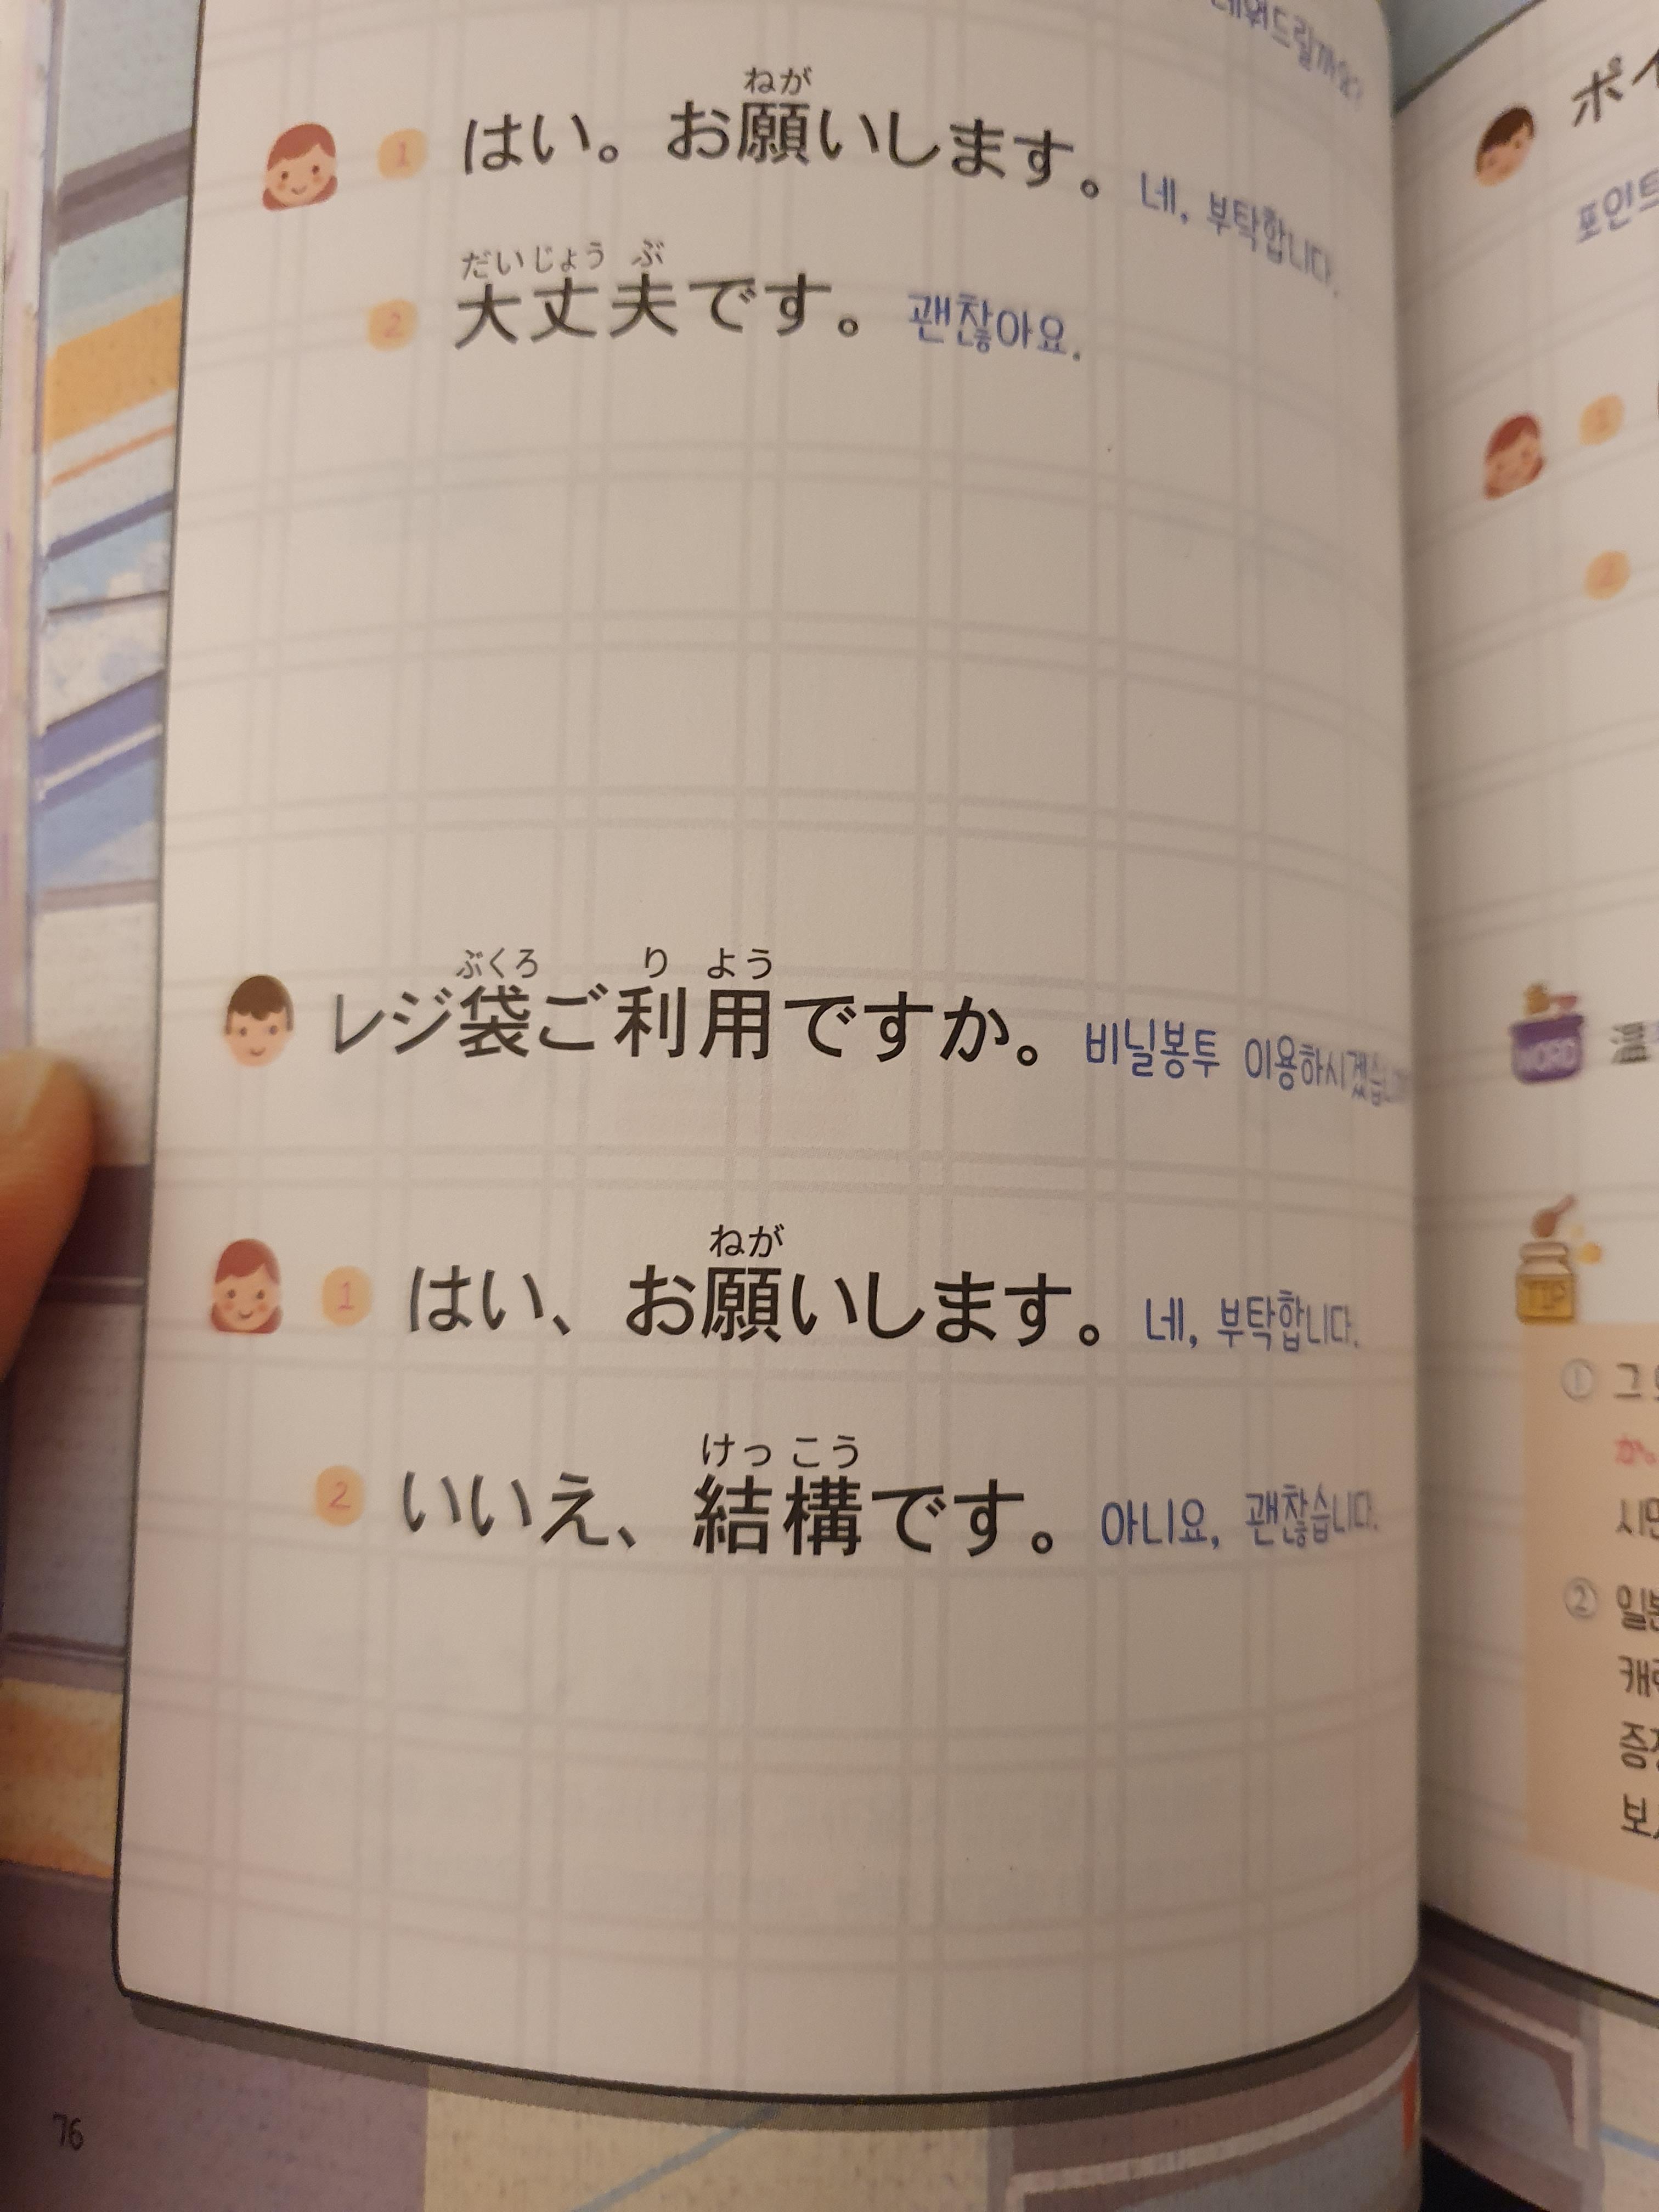 데워드릴까요?
ねが
はい。お願いします。 네, 부탁합니다.
だいじょうぶ
大丈夫です。 괜찮아요.
ぶくろ り よう
レジ袋ご利用ですか。 비닐봉투 이용하시겠습니
ねが
はい、お願いします。 네, 부탁합니다.
けっ こう
いいえ、結構です。 아니요, 괜찮습니다.
76
ポイ
포인트
1
2
WORD 温
TIP
① 그
か。
시면
② 일본
캐
증정
보